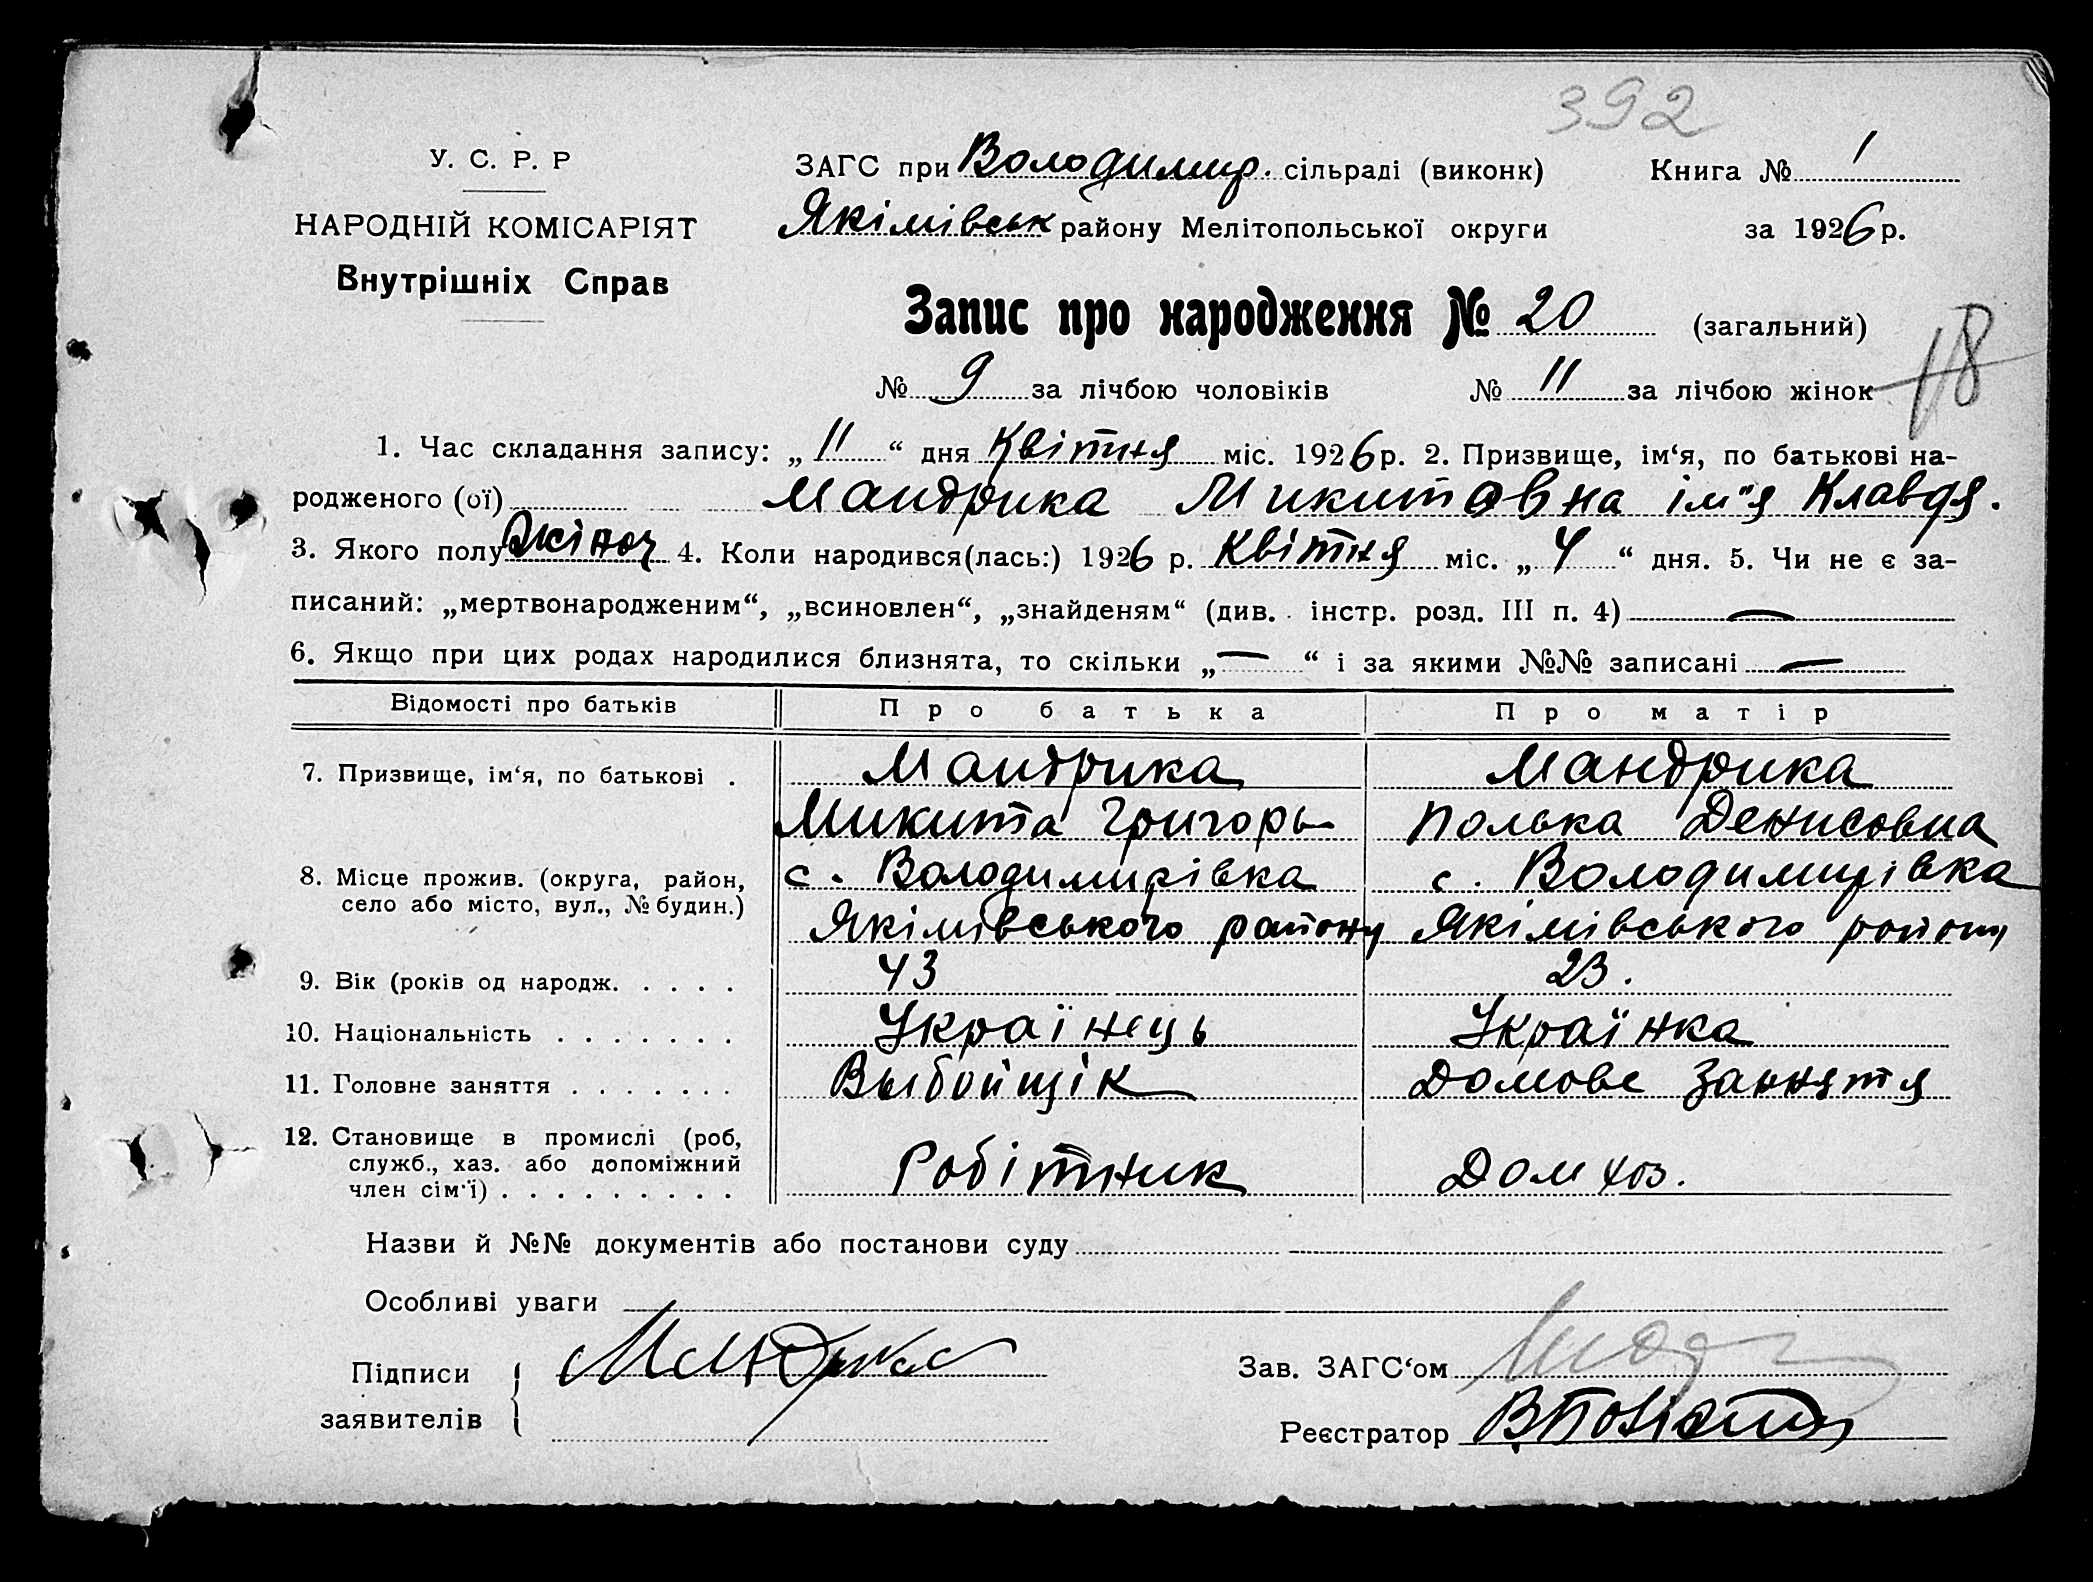 392
У. С. Р. Р
ЗАГС при Володимир. сільраді (виконк)
Книга № 1
НАРОДНІЙ КОМІСАРІЯТ
Якімівськ району Мелітопольської округи
за 1926 р.
Внутрішніх Справ
Запис про народження № 20 (загальний)
18
№ 9 за лічбою чоловіків № 11 за лічбою жінок
1. Час складання запису: „11“ дня Квітня міс. 1926 р. 2. Призвище, ім‘я, по батькові на-
родженого (ої) Мандрика Микитовна ім"я Клавдя.
3. Якого полу жіноч 4. Коли народився(лась:) 1926 р. Квітня міс. „4“ дня. 5. Чи не є за-
писаний: „мертвонародженим“, „всиновлен“, „знайденям“ (див. інстр. розд. III п. 4) —
6. Якщо при цих родах народилися близнята, то скільки „—“ і за якими №№ записані —
Відомості про батьків Про батька Про матір
7. Призвище, ім‘я, по батькові . Мандрика Мандрика
Микита Григорь Полька Денисовна
8. Місце прожив. (округа, район, с. Володимирівка с. Володимирівка
село або місто, вул., № будин.)
Якімівського району Якімівського району
9. Вік (років од народж. . . . . 43 23.
10. Національність . . . . . . . Українець Українка
11. Головне заняття . . . . . . . Выбойщік Домове Заняття
12. Становище в промислі (роб,
служб., хаз. або допоміжний Робітник Дом хоз.
член сім'ї) . . . . . . . . .
Назви й №№ документів або постанови суду
Особливі уваги
Підписи Мандрика
заявителів
Зав. ЗАГС‘ом
Реєстратор